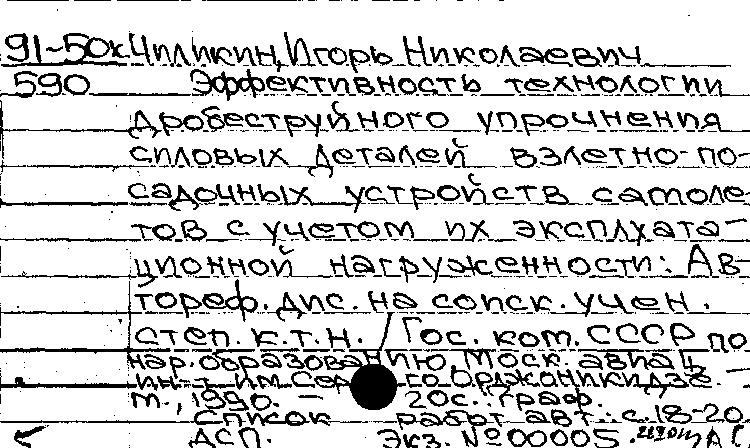 91-50к Чиликин, Игорь Николаевич
590 Эффективность технологии
дробеструйного упрочнения
силовых деталей взлетно-по-
садочных устройств самоле
тов с учетом их эксплуата-
ционной нагруженности: Ав-
тореф. дис. на соиск. учен.
степ. к.т.н. / Гос. ком. СССР по
нар. образованию, Моск. авиац.
ин-т им. Сер го Орджоникидзе. –
М., 1990. – 20с.: граф.
Список работ авт.: с. 18-20.
ДСП. Экз. № 00005